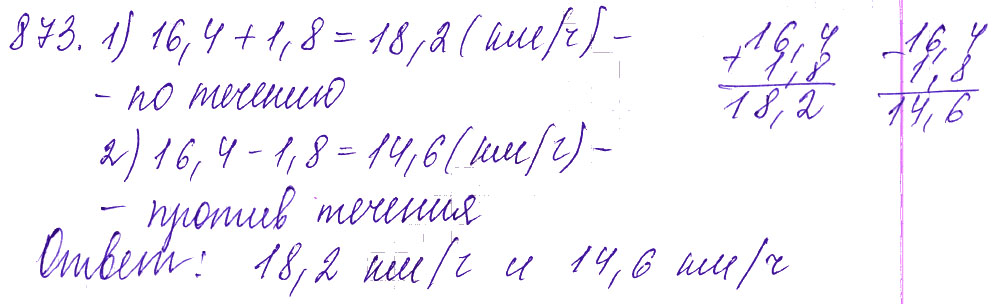 873. 1) 16,4 + 1,8 = 18,2 (км/ч) –
– по течению
2) 16,4 – 1,8 = 14,6 (км/ч) –
– против течения
Ответ: 18,2 км/ч и 14,6 км/ч
16,4
+ 1,8
18,2
16,4
– 1,8
14,6